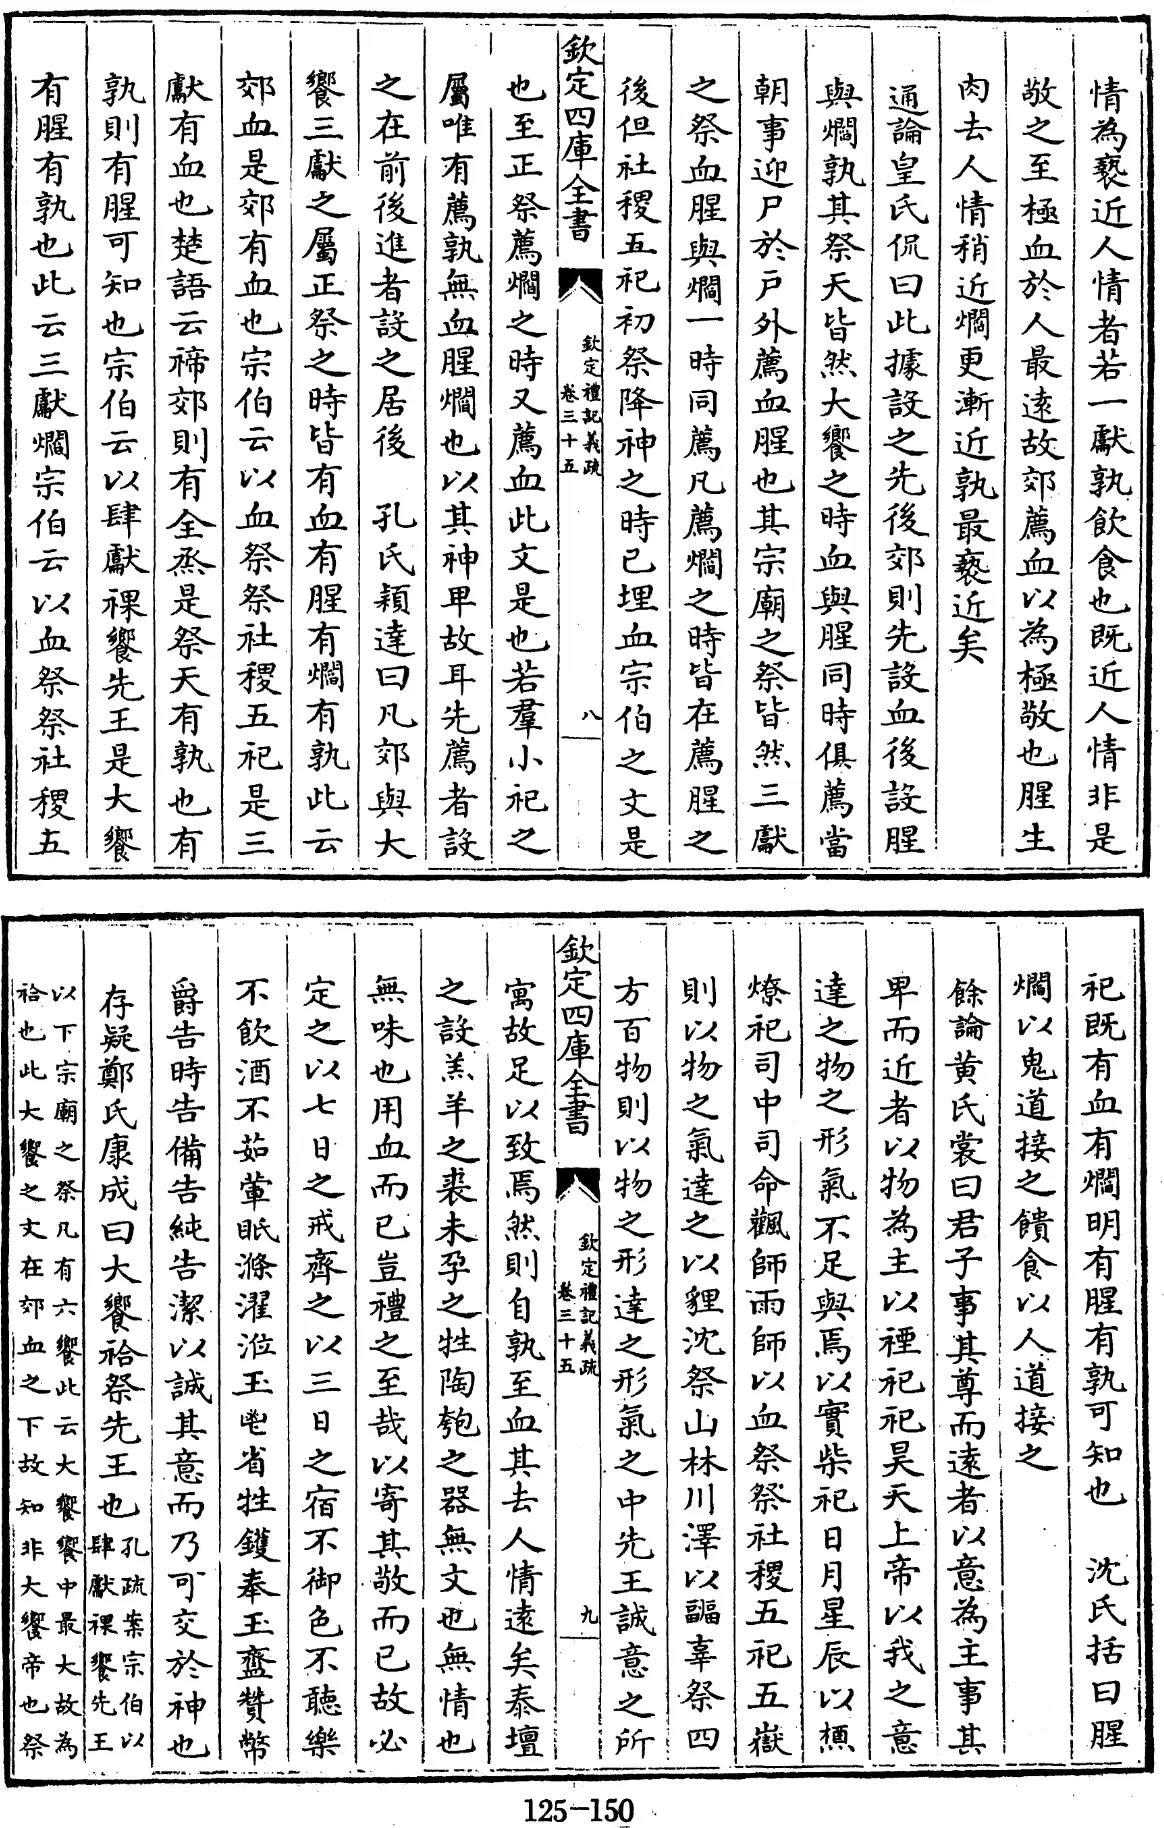 情為褻近人情者若一獻孰飲食也既近人情非是
敬之至極血於人最遠故郊薦血以為極敬也腥生
肉去人情稍近爓更漸近孰最褻近矣
通論皇氏侃曰此據設之先後郊則先設血後設腥
與爓孰其祭天皆然大饗之時血與腥同時俱薦當
朝事迎尸於戶外薦血腥也其宗廟之祭皆然三獻
之祭血腥與爓一時同薦凡薦爓之時皆在薦腥之
後但社稷五祀初祭降神之時已埋血宗伯之文是
欽定四庫全書
欽定禮記義疏
卷三十五
八
也至正祭薦爓之時又薦血此文是也若羣小祀之
屬唯有薦孰無血腥爓也以其神卑故耳先薦者設
之在前後進者設之居後 孔氏穎達曰凡郊與大
饗三獻之屬正祭之時皆有血有腥有爓有孰此云
郊血是郊有血也宗伯云以血祭祭社稷五祀是三
獻有血也楚語云禘郊則有全烝是祭天有孰也有
孰則有腥可知也宗伯云以肆獻祼饗先王是大饗
有腥有孰也此云三獻爓宗伯云以血祭祭社稷五
祀既有血有爓明有腥有孰可知也 沈氏括曰腥
爓以鬼道接之饋食以人道接之
餘論黃氏裳曰君子事其尊而遠者以意為主事其
卑而近者以物為主以禋祀祀昊天上帝以我之意
達之物之形氣不足與焉以實柴祀日月星辰以槱
燎祀司中司命飌師雨師以血祭祭社稷五祀五嶽
則以物之氣達之以貍沈祭山林川澤以疈辜祭四
方百物則以物之形達之形氣之中先王誠意之所
欽定四庫全書
欽定禮記義疏
卷三十五
九
寓故足以致焉然則自孰至血其去人情遠矣泰壇
之設羔羊之裘未孕之牲陶匏之器無文也無情也
無味也用血而已豈禮之至哉以寄其敬而已故必
定之以七日之戒齊之以三日之宿不御色不聽樂
不飲酒不茹葷眂滌濯涖玉鬯省牲鑊奉玉齍贊幣
爵告時告備告純告潔以誠其意而乃可交於神也
存疑鄭氏康成曰大饗祫祭先王也孔疏案宗伯以
肆獻祼饗先王
以下宗廟之祭凡有六饗此云大饗饗中最大故為
祫也此大饗之文在郊血之下故知非大饗帝也祭
125-150